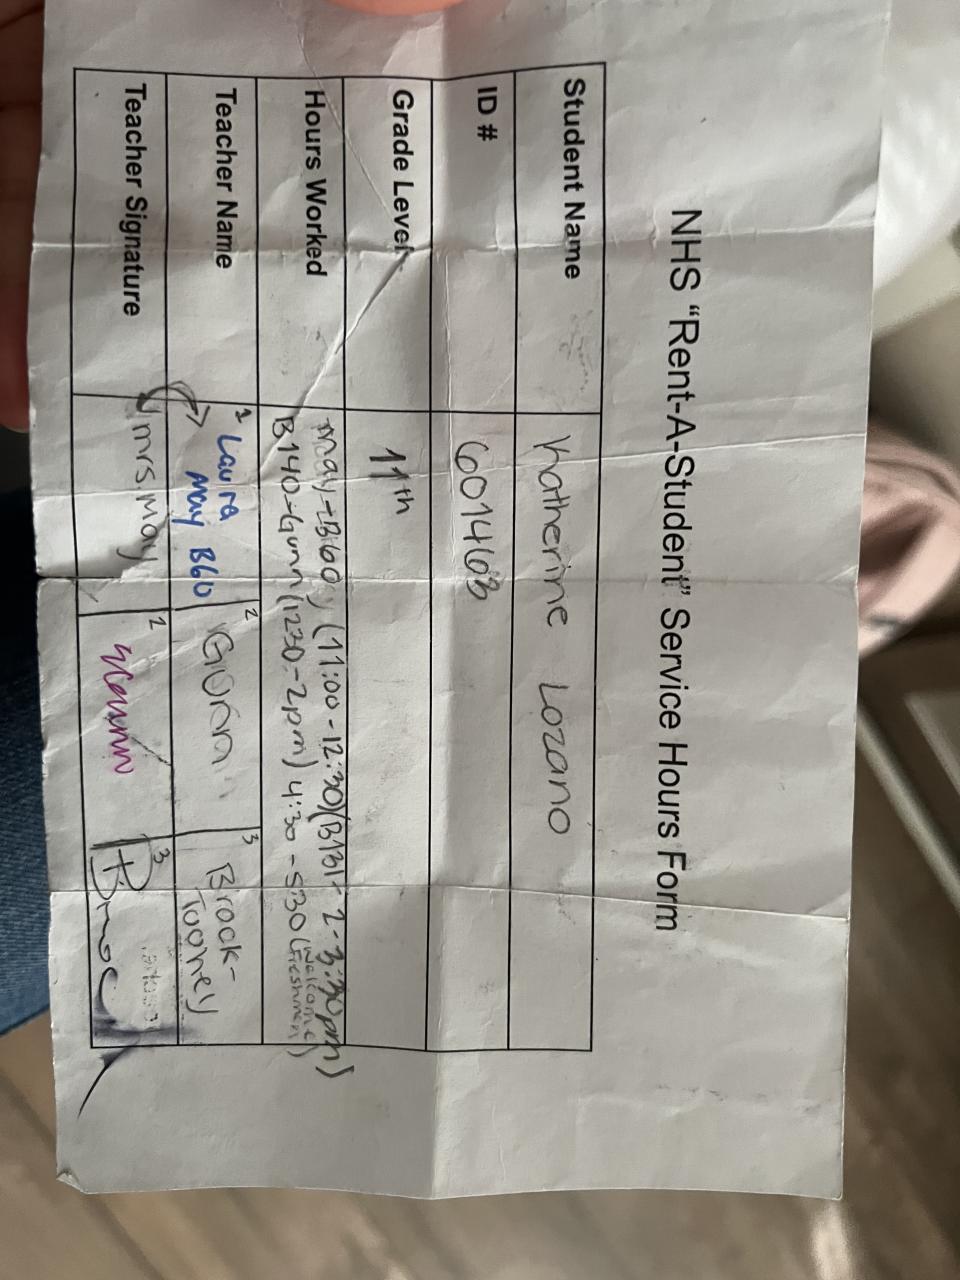 NHS “Rent-A-Student” Service Hours Form
Student Name Katherine Lozano
ID # 6001463
Grade Level 11th
Hours Worked may-B60, (11:00-12:30)(B131-2-3:30pm)
B140-Gunn (1230-2pm) 4:30-530 (Welcome
Freshmen)
Teacher Name 1 Laura 2 Gunn 3 Brock-
may B60 Tooney
Teacher Signature mrs.may 2 3